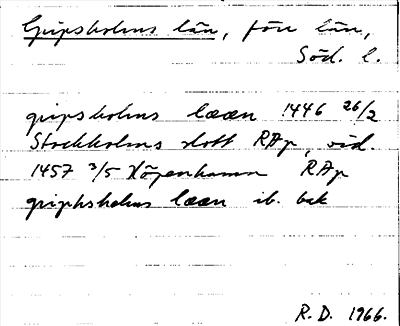 Gripsholms län, förr län,
Söd. l.
gripsholms lææn 1446 26/2
Stockholms slott RAp, vid.
1457 3/5 Köpenhamn RAp
griphsholms lææn ib. bak
R. D. 1966.